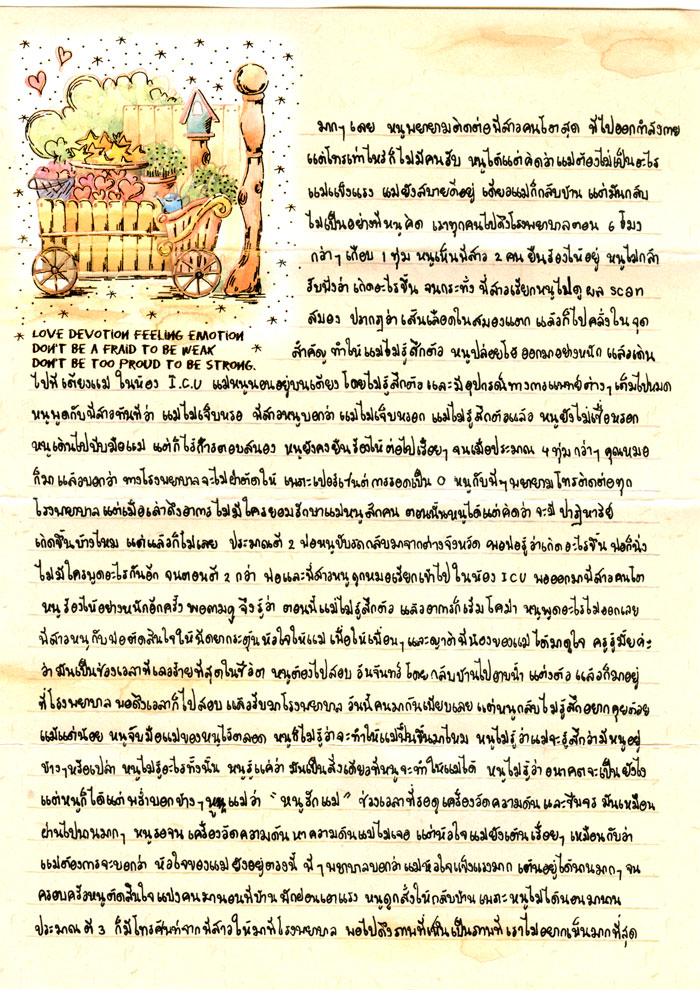 LOVE DEVOTION FEELING EMOTION
DON'T BE A FRAID TO BE WEAK
DON'T BE TOO PROUD TO BE STRONG.
มากๆ เลย หนูพยายามติดต่อพี่สาวคนโตสุด ที่ไปออกกำลังกาย
แต่โทรเท่าไหร่ก็ไม่มีคนรับ หนูได้แต่คิดว่าแม่ต้องไม่เป็นอะไร
แม่แข็งแรง แม่ยังสบายดีอยู่ เดี๋ยวแม่ก็กลับบ้าน แต่มันกลับ
ไม่เป็นอย่างที่หนูคิด เราทุกคนไปถึงโรงพยาบาลตอน 6 โมง
กว่าๆ เกือบ 1 ทุ่ม หนูเห็นพี่สาว 2 คน ยืนร้องไห้อยู่ หนูไม่กล้า
รับฟังว่า เกิดอะไรขึ้น จนกระทั่ง พี่สาวเรียกหนูไปดู ผล scan
สมอง ปรากฏว่า เส้นเลือดในสมองแตก แล้วก็ไปคลั่งใน จุด
สำคัญ ทำให้แม่ไม่รู้สึกตัว หนูปล่อยโฮ ออกมาอย่างหนัก แล้วเดิน
ไปที่เตียงแม่ ในห้อง I.C.U แม่หนูนอนอยู่บนเตียง โดยไม่รู้สึกตัว และมีอุปกรณ์ทางการแพทย์ต่างๆ เต็มไปหมด
หนูพูดกับพี่สาวทันทีว่า แม่ไม่เจ็บหรอ พี่สาวหนูบอกว่า แม่ไม่เจ็บหรอก แม่ไม่รู้สึกตัวแล้ว หนูยังไม่เชื่อหรอก
หนูเดินไปบีบมือแม่ แต่ก็ไร้การตอบสนอง หนูยังคงยืนร้องไห้ต่อไปเรื่อยๆ จนเมื่อประมาณ 4 ทุ่ม กว่าๆ คุณหมอ
ก็มา แล้วบอกว่า ทางโรงพยาบาลจะไม่ผ่าตัดให้ เพราะเปอร์เซนต์การรอดเป็น 0 หนูกับพี่ๆ พยายามโทรติดต่อทุก
โรงพยาบาล แต่เมื่อเล่าถึงอาการ ไม่มีใครยอมรักษาแม่หนูสักคน ตอนนั้นหนูได้แต่คิดว่า จะมี ปาฏิหาริย์
เกิดขึ้นบ้างไหม แต่แล้วก็ไม่เลย ประมาณตี 2 พ่อหนูขับรถกลับมาจากต่างจังหวัด พอพ่อรู้ว่าเกิดอะไรขึ้น พ่อก็นิ่ง
ไม่มีใครพูดอะไรกันอีก จนตอนตี 2 กว่า พ่อและพี่สาวหนู ถูกหมอเรียกเข้าไป ในห้อง ICU พอออกมาพี่สาวคนโต
หนูร้องไห้อย่างหนักอีกครั้ง พอถามดู จึงรู้ว่า ตอนนี้แม่ไม่รู้สึกตัว แล้วอาการก็เริ่มโคม่า หนูพูดอะไรไม่ออกเลย
พี่สาวหนูกับพ่อตัดสินใจให้ฉีดยากระตุ้นหัวใจให้แม่ เพื่อให้เพื่อนๆ และญาติพี่น้องของแม่ ได้มาดูใจ ครูรู้มั้ยค่ะ
ว่า มันเป็นช่วงเวลาที่เลวร้ายที่สุดในชีวิต หนูต้องไปสอบ วันจันทร์ โดย กลับบ้านไปอาบน้ำ แต่งตัว แล้วก็มาอยู่
ที่โรงพยาบาล พอถึงเวลาก็ไปสอบ แล้วรีบมาโรงพยาบาล วันนี้คนมากันเยียบเลย แต่หนูกลับไม่รู้สึกอยากคุยด้วย
แม้แต่น้อย หนูจับมือแม่ของหนูไว้ตลอด หนูก็ไม่รู้ว่าจะทำให้แม่ฟื้นขึ้นมาไหม หนูไม่รู้ว่าแม่จะรู้สึกว่ามีหนูอยู่
ข้างๆหรือเปล่า หนูไม่รู้อะไรทั้งนั้น หนูรู้แค่ว่า มันเป็นสิ่งเดียวที่หนูจะทำให้แม่ได้ หนูไม่รู้ว่า อนาคตจะเป็นยังไง
แต่หนูก็ได้แต่ พร่ำบอกข้างๆ หูแม่ว่า "หนูรักแม่" ช่วงเวลาที่รอดูเครื่องวัดความดัน และชีพจร มันเหมือน
ผ่านไปนานมากๆ หนูรอจน เครื่องวัดความดัน หาความดันแม่ไม่เจอ แต่หัวใจแม่ยังเต้นเรื่อยๆ เหมือนกับว่า
แม่ต้องการจะบอกว่า หัวใจของแม่ ยังอยู่ตรงนี้ พี่ๆ พยาบาลบอกว่า แม่หัวใจแข็งแรงมาก เต้นอยู่ได้นานมากๆ จน
ครอบครัวหนูตัดสินใจ แบ่งคนมานอนที่บ้าน พักผ่อนเอาแรง หนูถูกสั่งให้กลับบ้าน เพราะหนูไม่ได้นอนมานาน
ประมาณ ตี 3 ก็มีโทรศัพท์จากพี่สาวให้มาที่โรงพยาบาล พอไปถึงภาพที่เห็นเป็นภาพที่ เราไม่อยากเห็นมากที่สุด